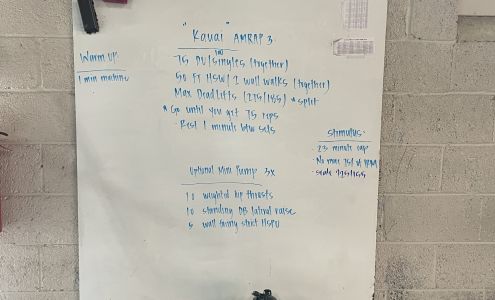 "Kauai" AMRAP 3
75 DU/singles (together)
50 FT HSW/2 wall walks (together)
Max Deadlifts (275/185) *split
* Go until you get 75 reps
- Rest 1 minute btw sets
Warm UP
1 min machine
Stimulus
- 23 minute cap
- No more 75% of 1RM
- scale 225/155
Optional Mini Pump 3x
10 weighted hip thrusts
10 standing DB lateral raise
5 wall facing strict HSPU